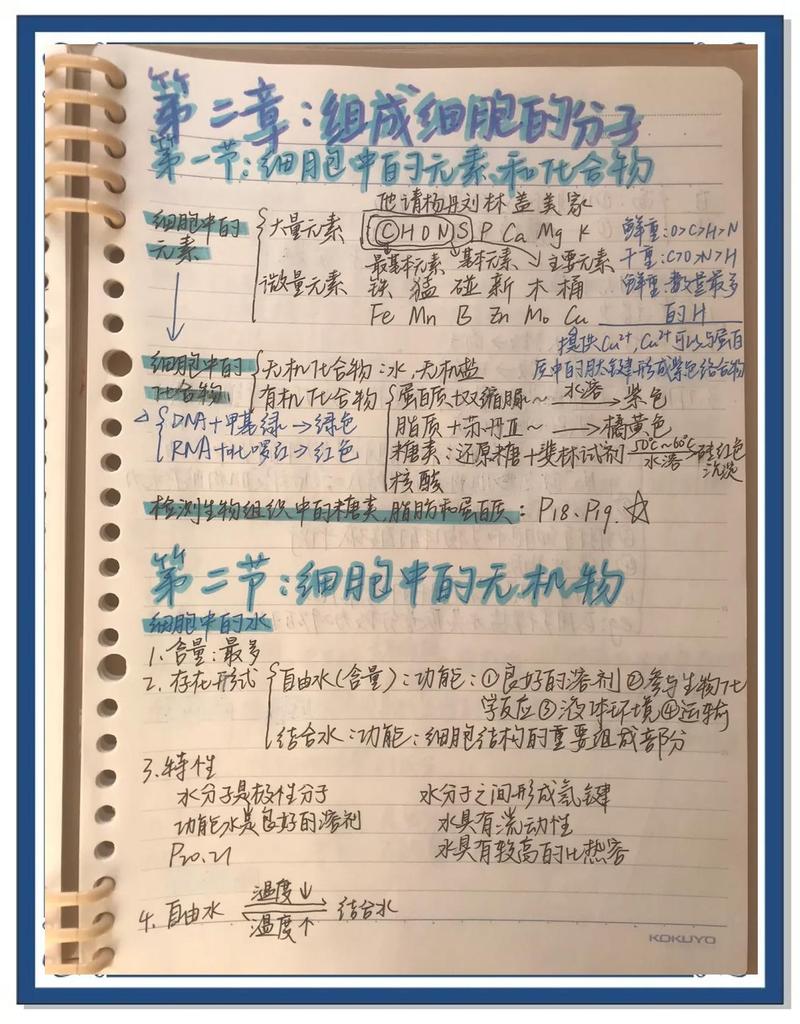 第二章:组成细胞的分子
第一节:细胞中的元素和化合物
他请杨丹刘林盖美家
细胞中的元素
大量元素 C H O N S P Ca Mg K
鲜重:O>C>H>N
最基本元素 基本元素 主要元素
干重:C>O>N>H
微量元素 铁 猛 碰 新 木 桶
鲜重:数量最多的H
Fe Mn B Zn Mo Cu
提供Cu²⁺,Cu²⁺可以与蛋白
质中的肽键形成紫色络合物
细胞中的化合物
无机化合物:水、无机盐
有机化合物
蛋白质+双缩脲~ 水溶→紫色
△ DNA+甲基绿→绿色
脂质+苏丹Ⅲ~ →橘黄色
RNA+吡啰红→红色
糖类:还原糖+斐林试剂 50℃~60℃ 水溶→砖红色沉淀
核酸
检测生物组织中的糖类、脂肪和蛋白质:P18、P19.☆
第二节:细胞中的无机物
细胞中的水
1.含量:最多
2.存在形式
自由水(含量):功能:①良好的溶剂②参与生物化
学反应③液体环境④运输
结合水:功能:细胞结构的重要组成部分
3.特性
水分子是极性分子 水分子之间形成氢键
功能水是良好的溶剂 水具有流动性
P20.21 水具有较高的比热容
4.自由水 温度↓ 温度↑ 结合水
KOKUYO